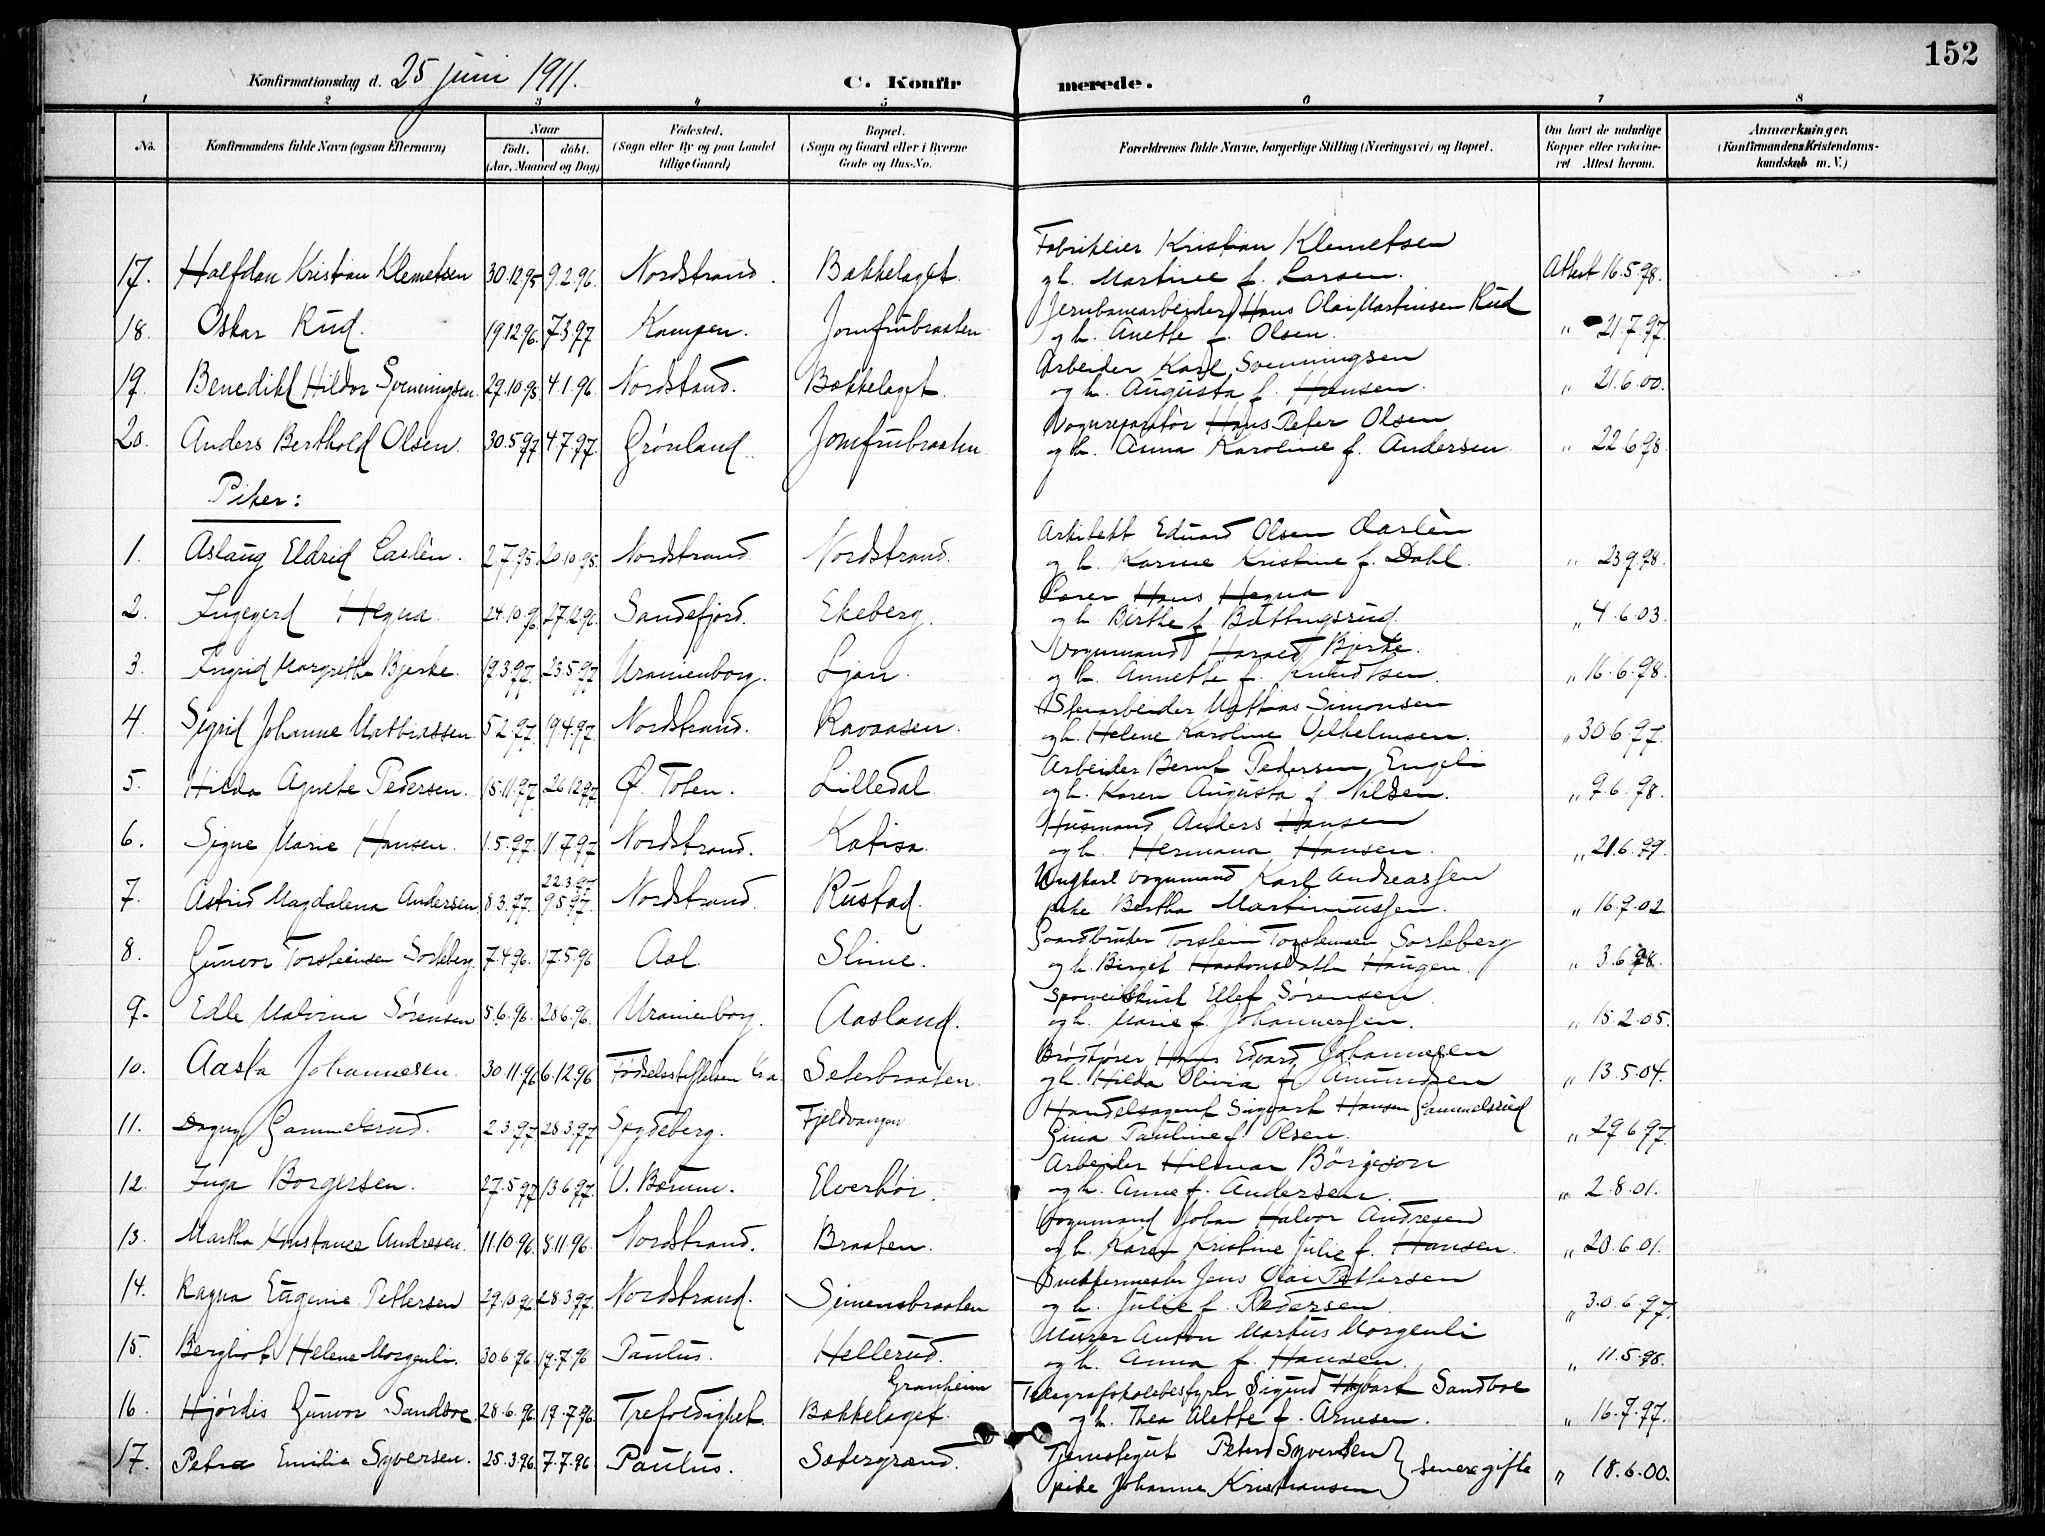 152
Konfirmationsdag d. 25 juni 1911. C. Konfirmerede.
1 2 3 4 5 6 7 8
No. Konfirmandens fulde Navn (ogsaa Efternavn) Naar født. døbt. (Aar, Maaned og Dag) Fødested. (Sogn eller By og paa Landet tillige Gaard) Bopæl. (Sogn og Gaard eller i Byerne Gade og Hus-No. Forældrenes fulde Navne, borgerlige Stilling (Næringsvei) og Bopæl. Om havt de naturlige Kopper eller vaccineret Attest herom. Anmærkninger, (Konfirmandens Kristendomskundskab m. V.)
Fabrikeier Kristian Klemetsen
17. Halfdan Kristian Klemetsen 30.12.95 9.2.96. Nordstrand. Bækkelaget. og h. Martine f. Larsen. Attest 16.5.98.
Jernbanearbeider Hans Olai Martinsen Rud
18. Oskar Rud. 19.12.96. 7.3.97 Kampen. Jomfrubraaten og h. Anette f. Olsen. " 21.7.97.
Arbeider Karl Svenningsen
19. Benedikt Hildor Svenningsen. 29.10.95. 4.1.96. Nordstand. Bækkelaget. og h. Augusta f. Hansen. " 21.6.00.
Vognreparatør Hans Peter Olsen
20. Anders Berthold Olsen. 30.5.97 4.7.97. Grønland. Jomfrubraaten og h. Anna Karoline f. Andersen " 22.6.98.
Piker:
Arkitekt Edvard Olsen Caslèn
1. Aslaug Eldrid Caslèn. 2.7.95. 20.10.95. Nordstrand Nordstrand. og h. Karine Kristine f. Dahl. " 23.9.98.
Hans Hegna
2. Ingegerd Hegna. 24.10.96. 27.12.96. Sandefjord. Ekeberg. og h. Birthe f. " 4.6.03.
Vognmand Harald Bjerke.
3. Ingrid Margrethe Bjerke. 19.3.97. 23.5.97 Uranienborg. Ljan. og h. Annette f. Knudtsen. " 16.6.98.
Stenarbeider Mathias Simonsen
4. Sigrid Johanne Mathiassen. 5.2.97. 19.4.97. Nordstrand. Ravaasen. og h. Helene Karoline Vilhelmsen. " 30.6.97.
Arbeider Bernt Pedersen Engeli
5. Hilda Agnete Pedersen. 15.11.97. 26.12.97 Ø. Toten. Lilledal og h. Karen Augusta f. Nilsen. " 9.6.98.
Husmand Anders Hansen
6. Signe Marie Hansen. 1.5.97. 11.7.97 Nordstrand. Katisa. og h. Hermana Hansen. " 21.6.99.
22.3.97 Ungkarl vognmand Karl Andreassen
7. Astrid Magdalena Andersen 8.3.97. 9.5.97. Nordstrand. Rustad. pike Bertha Martinussen. " 16.9.02
Gaardbruker Torstein Torsteinsen Sorteberg
8. Gunvor Torsteinsen Sorteberg. 7.4.96. 17.5.96 Aal. Slime. og h. Birget Haakonsdatter Haugen. " 3.6.98.
Ellef Sørensen.
9. Edle Malvina Sørensen 5.6.96. 28.6.96. Uranienborg. Aasland. og h. Marie f. Johannessen. " 15.2.05.
Brødkjører Hans Edvard Johannesen
10. Aasta Johannesen. 30.11.96 6.12.96 Fødselsstiftelsen Kr.a. Seterbraaten. og h. Hilda Olivia f. Amundsen " 13.5.04.
Handelsagent Sigvart Hansen Gammelsrud
11. Dagny Gammelsrud. 2.3.97 28.3.97 Spydeberg. Fjeldvangen Gina Pauline f. Olsen. " 29.6.97.
Arbeider Hilmar Børgeson
12. Inga Borgersen. 27.5.97 13.6.97. V. Bærum. Elverhøi. og h. Anne f. Andersen. " 2.8.01.
Vognmand Johan Halvor Andresen
13. Martha Konstance Andresen. 11.10.96. 8.11.96. Nordstrand. Braaten. og h. Karen Kristine Julie f. Hansen. " 20.6.01.
Snekkermester Jens Olai Pettersen
14. Ragna Eugenie Pettersen 29.10.96 28.3.97. Nordstrand. Simensbraaten og h. Julie f. Pedersen. " 30.6.97.
Murer Anton Markus Morgenli
15. Bergliot Helene Morgenli. 30.6.96. 19.7.96 Paulus. Hellerud. og h. Anna f. Hansen. " 11.5.98.
Granheim Telegrafskolebestyrer Sigurd Sandboe
16. Hjørdis Gunvor Sandboe 28.6.96. 19.7.96. Trefoldighet. Bækkelaget. og h. Thea Alette f. Arnesen. " 16.7.97.
Tjenestegut Peter Syversen
17. Petra Emilie Syversen. 25.3.96. 7.7.96 Paulus. Sætergrænd. pike Johanne Kristiansen } senere gifte " 18.6.00.